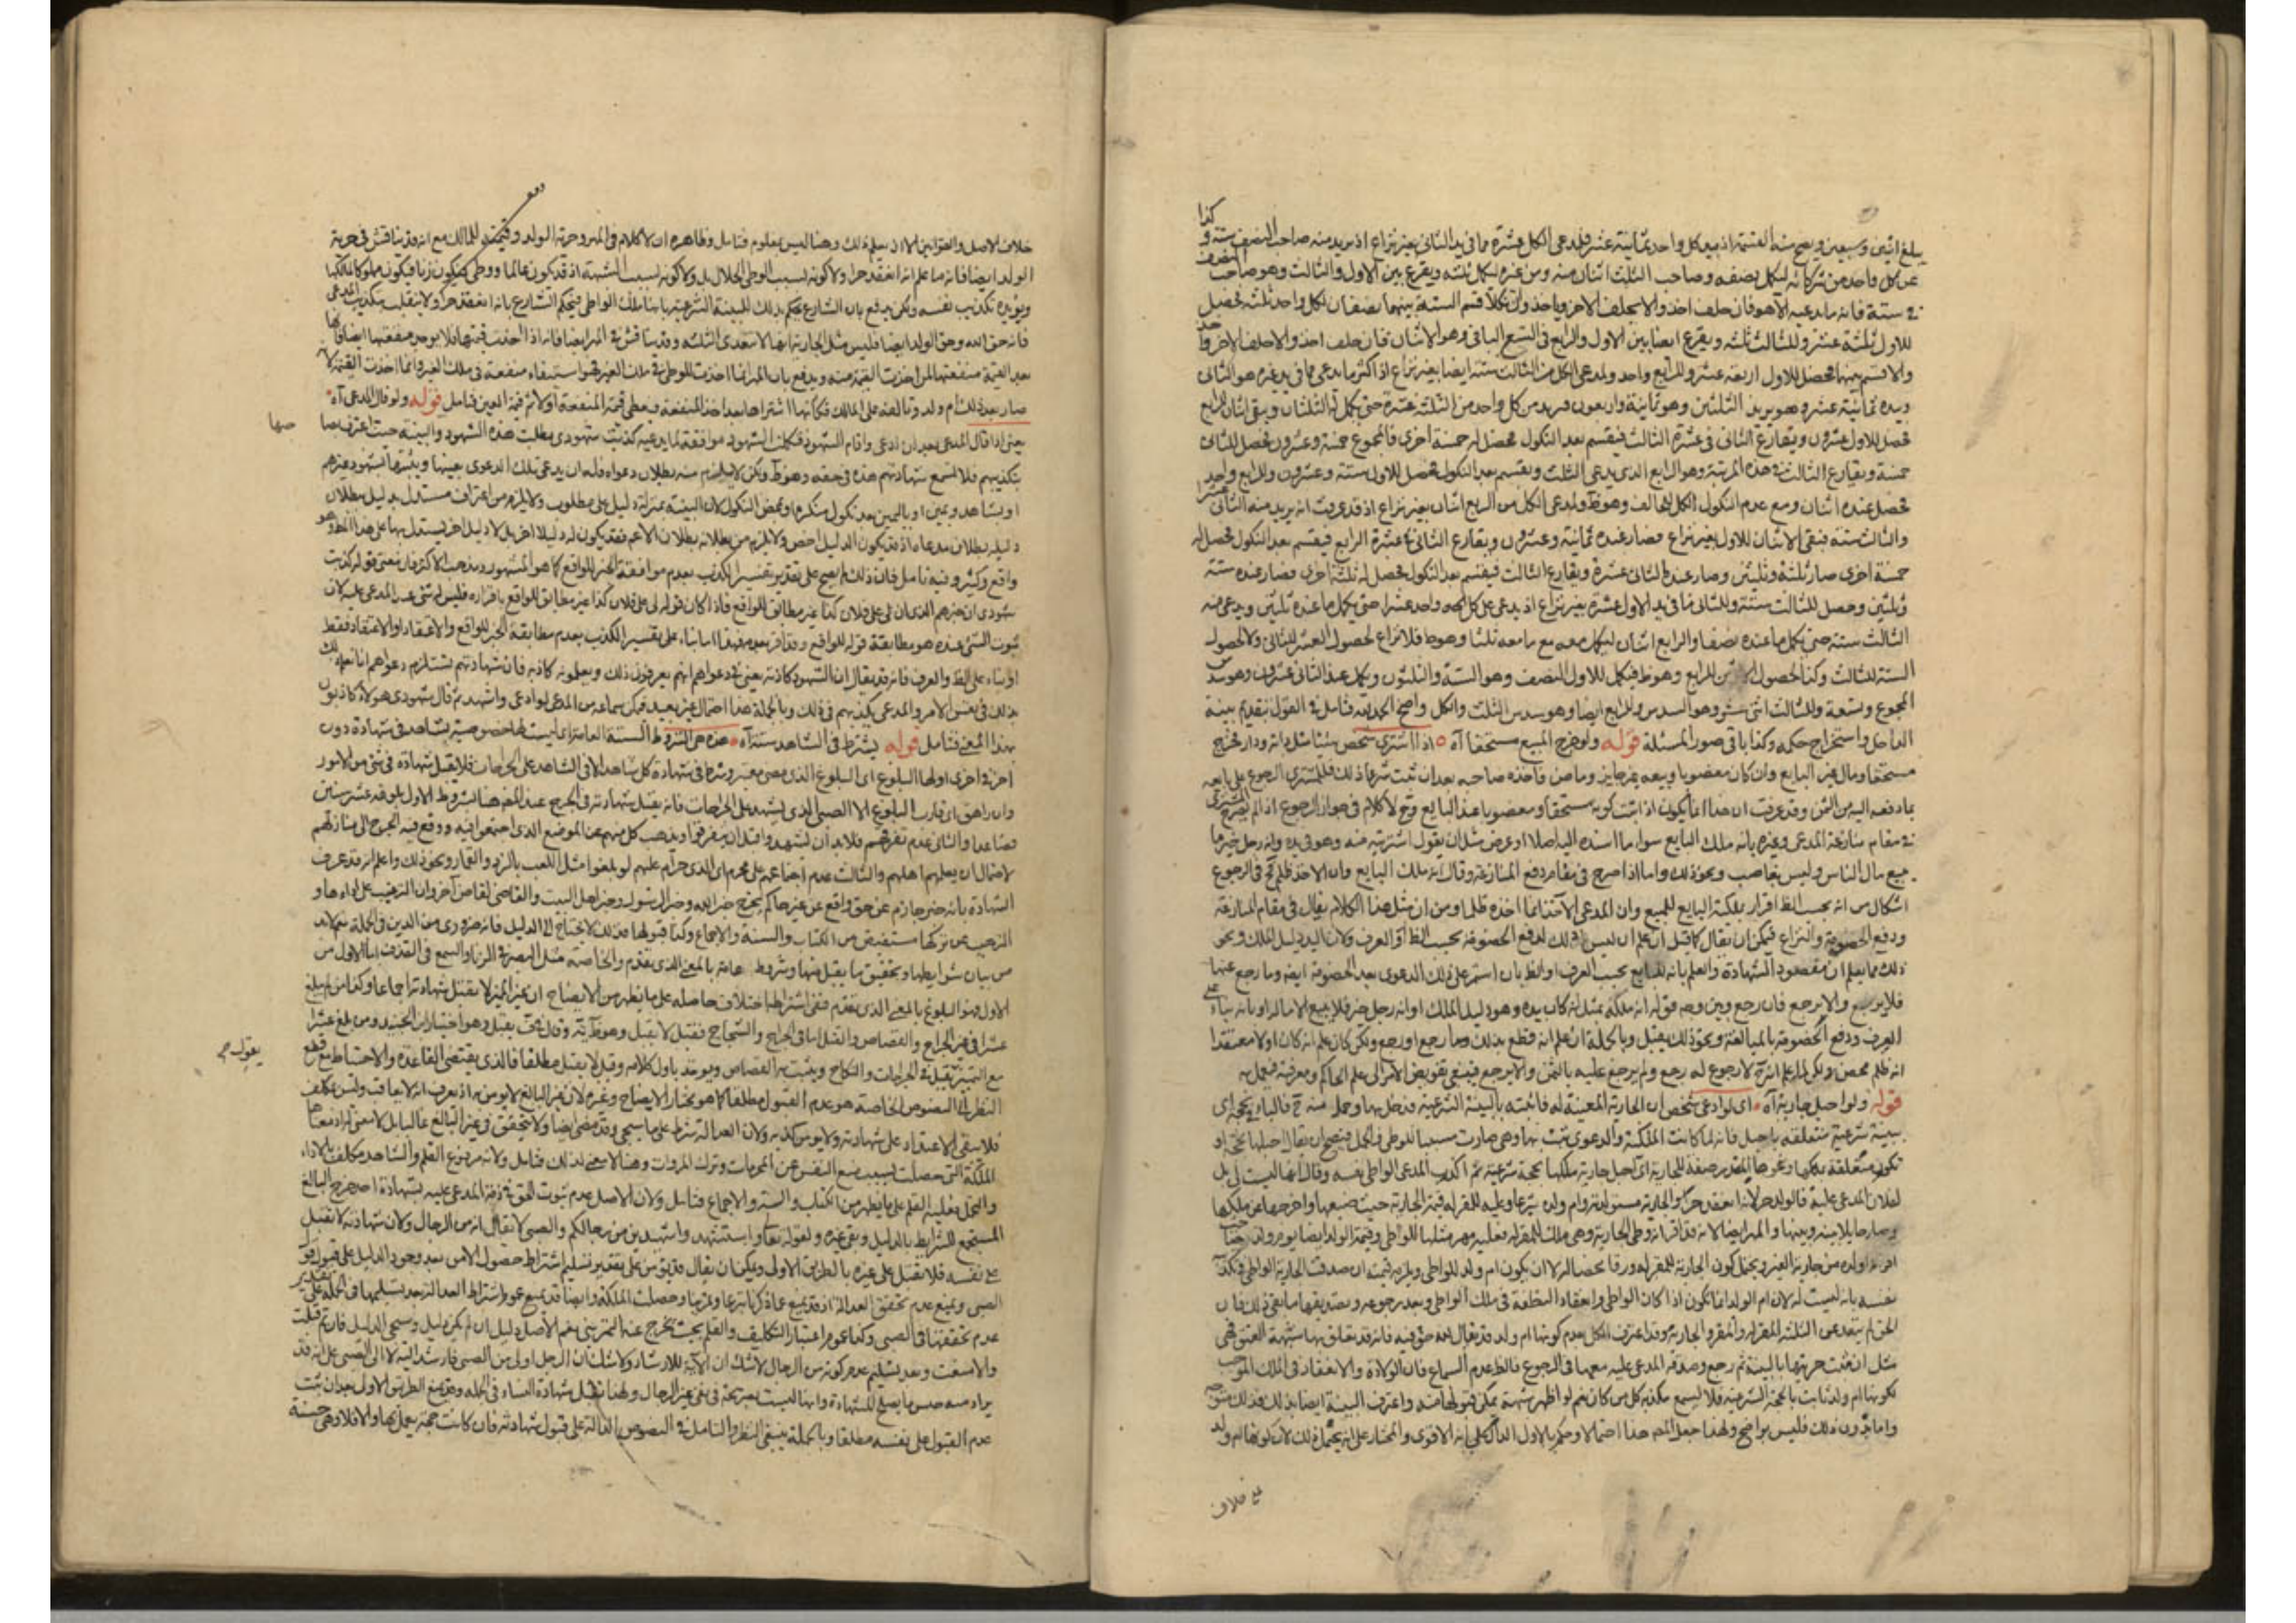 كذا
يبلغ اثنين وسبعين ويصح منه القسمة اذ بيد كل واحد ثمانية عشر فلمدعى الكل عشرة مما فى يد الثانى بغير نزاع اذ يريد منه صاحب النصف ستة و
عن كل واحد من شركائه ليكمل نصفه وصاحب الثلث اثنان منه ومن غيره ليكمل ثلثه ويقرع بين الاول والثالث وهو صاحب النصف
فى ستة فانه ما يدعيه الا هو فان حلف اخذ والا يحلف الاخر وياخذ وان نكلا قسم الستة بينهما نصفان لكل واحد ثلثة فحصل
للاول ثلثة عشر وللثالث ثلثة ويقرع ايضا بين الاول والرابع فى التسع الباقى وهو الاثنان فان حلف اخذ والا حلف الاخر واخذ
والا قسم بينهما فحصل للاول اربعة عشر وللرابع واحد ولمدعى الكل من الثالث ستة ايضا بغير نزاع اذ اكثر ما يدعى مما فى يد غيره هو الثانى
وبيده ثمانية عشر وهو يريد الثلثين وهو ثمانية واربعون فيريد من كل واحد من الثلثة عشرة حتى يكمل له الثلثان ويبقى اثنان للرابع
فحصل للاول عشرون ويقارع الثانى فى عشرة الثالث فيقسم بعد النكول فحصل له خمسة اخرى فالمجموع خمسة وعشرون فحصل للثانى
خمسة ويقارع الثالث فى هذه المرتبة وهو الرابع الذى يدعى الثلث ويقسم بعد النكول فحصل للاول ستة وعشرون وللرابع واحد
فحصل عنده اثنان ومع عدم النكول الكل للحالف وهو ظ ولمدعى الكل من الرابع اثنان بغير نزاع اذ قد عرفت انه يريد منه الثانى عشرة
والثالث ستة فبقى الاثنان للاول بغير نزاع فصار عنده ثمانية وعشرون ويقارع الثانى فى عشرة الرابع فيقسم بعد النكول فحصل له
خمسة اخرى صار ثلثة وثلثين وصار عند الثانى عشرة ويقارع الثالث فيقسم بعد النكول فحصل له ثلثة اخرى فصار عنده ستة
وثلثين وحصل للثالث ستة وللثانى مما فى يد الاول عشرة بغير نزاع اذ يدعى على كل واحد عشرا حتى يكمل ما عنده ثلثين ويدعى منه
الثالث ستة حتى يكمل ما عنده نصفا والرابع اثنان ليكمل معه مع ما معه ثلثا وهو ظ فلا نزاع لحصول العشر للثانى ولا لحصول
الستة للثالث وكذا لحصول الاثنين للرابع وهو ظ فيكمل للاول النصف وهو الستة والثلثون ويكمل عند الثانى عشرون وهو سدس
المجموع وتسعة وللثالث اثنى عشر وهو السدس وللرابع ايضا وهو سدس الثلث والكل واضح الحمد لله فتامل فى القول بتقديم بينة
الداخل واستخراج حكمه وكذا باقى صور المسئلة قوله ولو خرج المبيع مستحقا آه اذا اشترى شخص شيئا مثل دابة ودار فخرج
مستحقا ومال غير البايع وان كان مغصوبا وبيعه غير جايز وما ضن فاخذه صاحبه بعد ان ثبت شرعا ذلك فللمشترى الرجوع على بايعه
بما دفعه اليه من الثمن وقد عرفت ان هذا انما يكون اذا ثبت كونه مستحقا ومغصوبا عند البايع وح لا كلام فى جواز الرجوع اذا لم يصرح المشترى
فى مقام منازعة المدعى وغيره بانه ملك البايع سواء ما اسنده اليه اصلا او عرض مثل ان يقول اشتريته منه وهو فى يده وانه رجل خير ما
يبيع مال الناس وليس بغاصب ونحو ذلك واما اذا صرح فى مقام دفع المنازعة وقال انه ملك البايع وان الاخذ ظلم فح فى الرجوع
اشكال من انه بحسب الظ اقرار بملكية البايع للمبيع وان المدعى الآخذ انما اخذه ظلما ومن ان مثل هذا الكلام يقال فى مقام المنازعة
ودفع الخصومة والنزاع فيمكن ان يقال كما قيل ان علم ان ليس ذلك لدفع الخصومة بحسب الظ او العرف ولان اليد دليل الملك ونحو
ذلك مما يعلم ان مقصود الشهادة والعلم بانه للبايع بحسب العرف او الظ بان استمر على ذلك الدعوى بعد الخصومة ايضا وما رجع عنها
فلا يرجع والا يرجع فان رجع وبين وجه قوله انه ملكه بمثل انه كان بيده وهو دليل الملك او انه رجل خير فلا يبيع الا ماله او بانه بناء على
العرف ودفع الخصومة بالمبالغة ونحو ذلك يقبل وبالجملة ان علم انه قطع بذلك وما رجع او رجع ولكن كان علم انه كان اولا معتقدا
انه ظلم محض ولكن لما علم انه لا رجوع له رجع ولم يرجع عليه بالثمن والا يرجع فينبغى تفويض الامر الى علم الحاكم ومعرفته فيعمل به
قوله ولو احبل جارية آه اى لو ادعى شخص ان الجارية المعينة له فاثبته بالبينة الشرعية فدخل بها وحمل منه ح فالباء فى بحجة اى
بينة شرعية متعلقة باحبل فانه لما كانت الملكية والدعوى ثبت بها وهى صارت سببا للوطى والحمل فيصح ان يقال احبلها بحجة او
تكون متعلقة بملكها ونحوها المقدر صفة للجارية اى احبل جارية ملكها بحجة شرعية ثم اكذب المدعى الواطى نفسه وقال انها ليست لى بل
لفلان المدعى عليه فالولد حر لانه انعقد حرا والجارية مستولدة وام ولده شرعا وعليه للمقر له قيمة الجارية حيث ضيعها واخرجها عن ملكها
افراد ولده من جارية الغير ويحتمل كون الجارية للمقر له ورقا محضا له الا ان يكون ام ولد للواطى ويلزمه قيمته ان صدقت الجارية الواطى فى كذب
نفسه بانه ليست له لان ام الولد انما تكون اذا كان الواطى وانعقاد النطفة فى ملك الواطى وبعد رجوعه وتصديقها ما بقى ذلك فان
الحق لم يتعد عن الثلثة المقر له والمقر والجارية وقد اعترف الكل بعدم كونها ام ولد وقد يقال لله حق فيه فانه قد تعلق بها شبهة العتق فهى
مثل ان ثبت حريتها بالبينة ثم رجع وصدقه المدعى عليه معها فى الرجوع فالظ عدم السماع فان الولادة والانعقاد فى الملك الموجب
لكونها ام ولد ثابت بالحجة الشرعية فلا يسمع مكذبه كل من كان نعم لو اظهر شبهة يمكن قبولها منه واعترف البينة ايضا بذلك فذلك متوجه
واما بدون ذلك فليس بواضح ولهذا جعل المص هذا احتمالا وحكم بالاول الدال على انه الاقوى والمختار على انه يحتمل ذلك لان كونها ام ولد
على خلاف
خلاف الاصل والقوانين الا ان يعلم ذلك وهنا ليس بمعلوم فتامل وظاهره ان لا كلام فى المهر وحرية الولد وقيمته للمالك مع انه قد يناقش فى حرية
الولد ايضا فانه ما علم انه انعقد حرا ولا كونه لسبب الوطى الحلال بل ولا كونه لسبب الشبهة اذ قد يكون عالما ووطى فيكون زنا فيكون مملوكا لمالكها
ويؤيده تكذيب نفسه ولكن يدفع بان الشارع يحكم بذلك للبينة الشرعية بانها ملك الواطى فيحكم الشارع بانه انعقد حرا ولا ينقلب بتكذيب المدعى
فانه حق الله وحق الولد ايضا فليس مثل الجارية ايضا لا تتعدى الثلثة وقد يناقش فى المهر ايضا فانه اذا اخذت قيمتها فلا يوجر منفعتها ايضا فانها
صار بعد ذلك ام ولد وتالفة على المالك فكأنها اشتراها بعد اخذ المنفعة فيعطى قيمة المنفعة اولا ثم قيمة العين فتامل قوله ولو قال المدعى آه
يعنى اذا قال المدعى بعد ان ادعى واقام الشهود فتكلمت الشهود موافقة لما يدعيه كذبت شهودى بطلت هذه الشهود والبينة حيث اعترف
بتكذيبهم فلا تسمع شهادتهم هذه فى حقه وهو ظ ولكن لا يلزم منه بطلان دعواه فله ان يدعى تلك الدعوى بعينها ويثبتها بشهود غيرهم
او بشاهد ويمين او باليمين بعد نكول منكره او بمحض النكول لان البينة بمنزلة دليل على مطلوب ولا يلزم من اعتراف مستدل بدليل بطلان
دليله بطلان مدعاه اذ قد يكون الدليل اخص ولا يلزم من بطلانه بطلان الاعم فقد يكون له دليلا اخر بل لادليل اخر يستدل بها على هذا المط وهو
واقع وكثير وفيه تامل فان ذلك انما يصح على تقدير تفسير الكذب بعدم موافقة الخبر للواقع كما هو المشهور ومذهب الاكثر فان معنى قوله كذبت
شهودى ان خبرهم الذى ان لى على فلان كذا غير مطابق للواقع فاذا كان قوله لى على فلان كذا غير مطابق للواقع باقراره فليس له شئ عند المدعى عليه لان
ثبوت الشئ عنده هو مطابقة قوله للواقع وقد اقر بعدمه فهذا اما بناء على تفسير الكذب بعدم مطابقة الخبر للواقع والاعتقاد او الاعتقاد فقط
او بناء على الظ والعرف فانه قد يقال ان الشهود كاذبة يعنى فى دعواهم انهم يعرفون ذلك ويعلمونه كاذبة فان شهادتهم يستلزم دعواهم انا نعلم ذلك
بذلك فى نفس الامر والمدعى يكذبهم فى ذلك وبالجملة هذا احتمال غير بعيد فيمكن سماعه من المدعى لو ادعى واشهد ثم قال شهودى هؤلاء كاذبون
بهذا المعنى فتامل قوله يشترط فى الشاهد ستة آه هذه هى الشروط الستة العامة اى ليست لها خصوصية بشاهد فى شهادة دون
اخر فى اخرى اولها البلوغ اى البلوغ الذى مضى معتبر وشرط فى شهادة كل شاهد الا فى الشاهد على الجراحات فلا يقبل شهادة فى شئ من الامور
وان راهق اى قارب البلوغ الا الصبى الذى يشهد على الجراحات فانه يقبل شهادته فى الجرح عند المص هنا بشروط الاول بلوغه عشر سنين
فصاعدا والثانى عدم تفرقهم فلابد ان يشهدوا قبل ان يتفرقوا ويذهب كل منهم عن الموضع الذى اجتمعوا فيه ووقع فيه الجرح الى منازلهم
لاحتمال ان يعلمهم اهلهم والثالث عدم اجتماعهم على محرم اى الذى حرام عليهم لو بلغوا مثل اللعب بالنرد والقمار ونحو ذلك واعلم انه قد عرف
الشهادة بانه خبر جازم عن حق واقع عن غير حاكم يخرج خبر الله وخبر الرسول وخبر اهل البيت والقاضى لقاض آخر وان الترغيب على اداءها و
الترهيب عن تركها مستفيض من الكتاب والسنة والاجماع وكذا قبولها فذلك لا يحتاج الى الدليل فانه ضرورى من الدين فى الجملة نعم لابد
من بيان شرايطها وتحقيق ما يقبل منها وشروط عامة بالمعنى الذى تقدم والخاصة مثل البصر فى الزنا والسمع فى القذف اما الاول من
الاول فهو البلوغ بالمعنى الذى تقدم ففى اشتراطه اختلاف حاصله على ما يظهر من الايضاح ان غير المميز لا يقبل شهادته اجماعا وكذا من لم يبلغ
عشرا فى غير الجراح والقصاص والقتل اما فى الجراح والشجاج فقيل لا يقبل وهو ظ وقيل يقبل وهو اختيار ابن الجنيد ومن بلغ عشرا
مع التميز تقبل فى الجراحات والنكاح ويثبت به القصاص ويوخذ باول كلامه وقيل لا يقبل مطلقا فالذى يقتضى القاعدة والاحتياط مع قطع
النظر الى النصوص الخاصة هو عدم القبول مطلقا كما هو مختار الايضاح وغيره لان غير البالغ لا يومن به اذ يعرف انه لا يعاقب وليس بمكلف
فلا يبقى الاعتماد على شهادته ولا يومن كذبه ولان العدالة شرط على ما سيجئ وقد مضى ايضا ولا يتحقق فى غير البالغ
الملكة التى حصلت بسبب منع النفس عن المحرمات وترك المروات وهنا لا معنى لذلك فتامل ولانه مرفوع القلم والشاهد مكلف بالاداء
والتحمل فعليه القلم على ما يظهر من الكتاب والسنة والاجماع فتامل ولان الاصل عدم ثبوت الحق فى ذمة المدعى عليه بشهادة احد خرج البالغ
المستجمع للشرايط بالدليل وبقى غيره ولقوله تعالى واستشهدوا شهيدين من رجالكم والصبى لا يقال انه من الرجال ولان شهادته لا تقبل
على نفسه فلا تقبل على غيره بالطريق الاولى ويمكن ان يقال قد يومن على تقدير تسليم اشتراط حصول الامن بعد وجود الدليل على قبول قول
الصبى ويمنع عدم تحقق العدالة اذ قد يمنع عما ذكرنا شرعا وعرفا وحصلت الملكة وايضا قد يمنع عموم اشتراط العدالة بعد تسليمها فى الجملة على تقدير
عدم تحققها فى الصبى وكذا عموم اعتبار التكليف والقلم بحيث يخرج عنه المميز نعم الاصل دليل ان لم يكن دليل وسيجئ الدليل فان تم قبلت
والا سقطت وبعد تسليم عدم كونه من الرجال لا شك ان الآية للارشاد ولا شك ان الرجل اولى من الصبى فارشد اليه لا الى الصبى على انه قد
يراد منه جنس ما يصلح للشهادة وانها ليست بصريحة فى نفى غير الرجال ولهذا تقبل شهادة النساء فى الجملة وقد يمنع الطريق الاولى بعد ان ثبت
عدم القبول على نفسه مطلقا وبالجملة ينبغى النظر والتامل فى النصوص الدالة على قبول شهادته فان كانت حجة يعمل بها والا فلا وهى حسنة